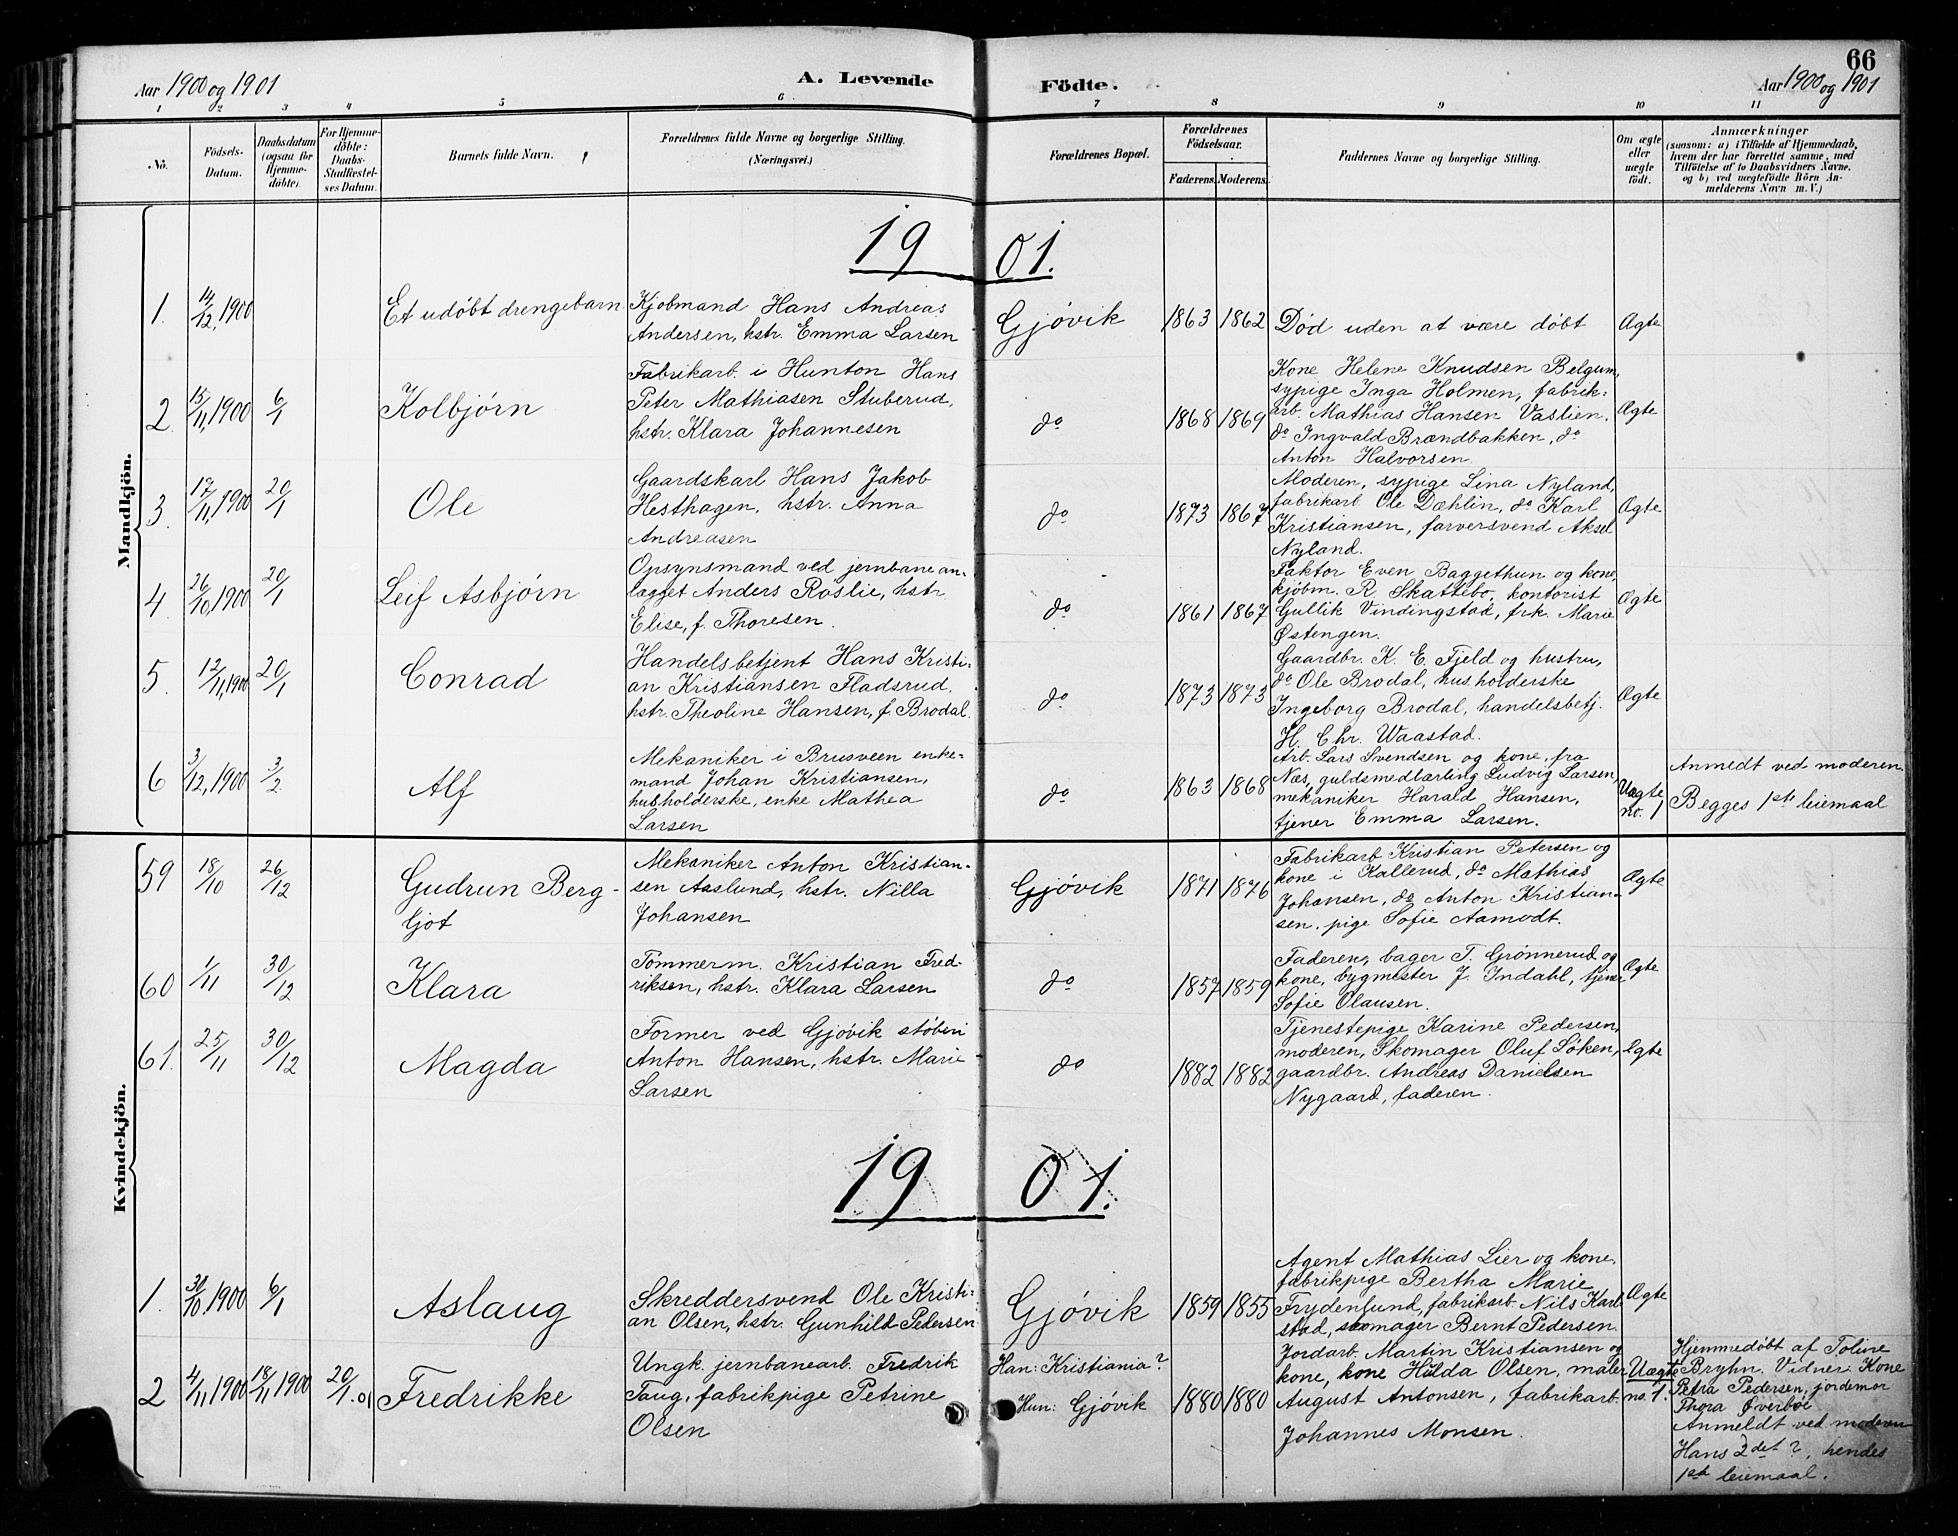 66
Aar 1900 og 1901
A. Levende
Födte.
Aar 1900 og 1901
1 2 3 4 5 6 7 8 9 10 11
No.
Födsels-
Datum.
Daabsdatum
(ogsaa for
Hjemme-
döbte).
For Hjemme-
döbte:
Daabs-
Stadfæstel-
ses Datum.
Barnets fulde Navn.
Forældrenes fulde Navne og borgerlige Stilling.
(Næringsvei.)
Forældrenes Bopæl.
Forældrenes
Födselsaar.
Faderens. Moderens.
Faddernes Navne og borgerlige Stilling.
Om ægte
eller
uægte
födt.
Anmærkninger
(saasom: a) i Tilfælde af Hjemmedaab,
hvem der har forrettet samme, med
Tilföielse af to Daabsvidners Navne.
og b) ved uægtefödte Börn An-
melderens Navn m.V.)
Mandkjön.
1901.
1. 14/12, 1900
Et udøbt drengebarn
Kjøbmand Hans Andreas
Andersen, hstr. Emma Larsen
Gjøvik
1863 1862
Død uden at være døbt
Ægte
2. 15/11, 1900 6/1
Kolbjørn
Fabrikarb. i Hunton Hans
Peter Mathiasen Stuberud,
hstr. Klara Johannesen
do
1868 1869
Kone Helene Knudsen Belgum,
sypige Inga Holmen, fabrik-
arb. Mathias Hansen Vaslien.
do Ingvald Brændbakken, do
Anton Halvorsen
Ægte
3. 17/11, 1900 20/1
Ole
Gaardskarl Hans Jakob
Hesthagen, hstr. Anna
Andreasen
do
1873 1867
Moderen, sypige Lina Nyland,
fabrikarb. Ole Dæhlin, do Karl
Kristiansen, farversvend Aksel
Nyland.
Ægte
4. 26/10, 1900 20/1
Leif Asbjørn
Opsynsmand ved jernbanean-
lægget Anders Røslie, hstr.
Elise, f. Thoresen.
do
1861 1867
Faktor Even Baggethun og kone,
kjøbm. R. Skattebo, kontorist
Gullik Vindingstad, frk. Marie
Østengen.
Ægte
5. 12/11, 1900 20/1
Conrad
Handelsbetjent Hans Kristi-
an Kristiansen Fladsrud,
hstr. Theoline Hansen, f. Brodal.
do
1873 1873
Gaardbr. K. E. Fjeld og hustru,
do Ole Brodal, husholderske
Ingeborg Brodal, handelsbetj.
H. Chr. Waastad.
Ægte
6 3/12, 1900 3/2
Alf
Mekaniker i Brusveen enke-
mand Johan Kristiansen,
husholderske, enke Mathea
Larsen
do
1863 1868
Arb. Lars Svendsen og kone, fra
Næs, guldsmedlærling Ludvig Larsen,
mekaniker Harald Hansen,
tjener Emma Larsen.
Uægte
no. 1
Anmedt ved moderen.
Begges 1ste leiemaal
Kvindekjön.
59 18/10 26/12
Gudrun Berg-
ljot
Mekaniker Anton Kristian-
sen Aaslund, hstr. Nilla
Johansen
Gjøvik
1871 1876
Fabrikarb Kristian Petersen og
kone i Kallerud, do Mathias
Johansen, do Anton Kristian-
sen, pige Sofie Aamodt.
Ægte
60 1/11 30/12
Klara
Tømmerm. Kristian Fred-
riksen, hstr. Klara Larsen
do
1857 1859
Faderen, bager T. Grønnerud og
kone, bygmester J. Indahl, tjener
Sofie Olausen.
Ægte
61. 25/11 30/12
Magda
Former ved Gjøvik støberi
Anton Hansen, hstr. Marie
Larsen
do
1882 1882
Tjenestepige Karine Pedersen,
moderen, Skomager Oluf Løken,
gaardbr. Andreas Danielsen
Nygaard, faderen.
Ægte
1901.
1. 30/10 1900 6/1
Aslaug
Skreddersvend Ole Kristi-
an Olsen, hstr. Gunhild Pedersen
Gjøvik
1859 1855
Agent Mathias Lier og kone,
fabrikpige Bertha Marie
Frydenlund, fabrikarb. Nils Karl-
stad, skomager Bernt Pedersen.
Ægte
2 4/11 1900 18/11 1900 20/1 01
Fredrikke
Ungk. jernbanearb. Fredrik
Taug, fabrikpige Petrine
Olsen
Han: Kristiania?
Hun: Gjøvik
1880 1880
Jordarb. Martin Kristiansen og
kone, kone Hilda Olsen, maler
August Antonsen, fabrikarb.
Johannes Monsen.
Uægte
no. 1.
Hjemmedøbt af Toline
Bryhn. Vidner: Kone
Petra Pedersen, jordemor
Thora Øverbøe
Anmeldt ved moderen
Hans 2det?, hendes
1ste leiemaal.